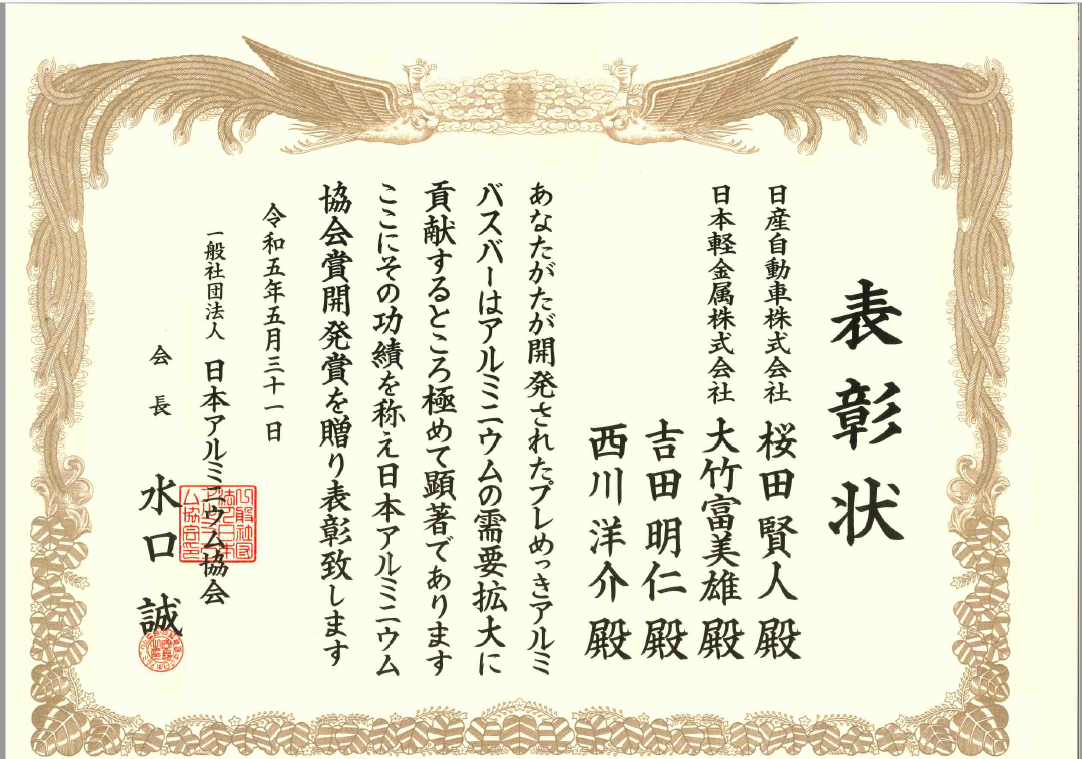 表彰状
日産自動車株式会社 桜田賢人殿
日本軽金属株式会社 大竹富美雄殿
吉田明仁殿
西川洋介殿
あなたがたが開発されたプレめっきアルミ
バスバーはアルミニウムの需要拡大に
貢献するところ極めて顕著であります
ここにその功績を称え日本アルミニウム
協会賞開発賞を贈り表彰致します
令和五年五月三十一日
一般社団法人 日本アルミニウム協会
会長 水口誠